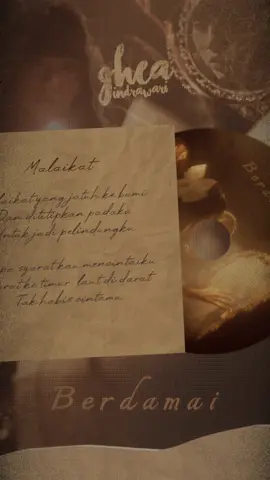 ghea
indrawari
Malaikat
yang jatuh ke bumi
Dan dititipkan padaku
jadi pelindungku
syarat kau mencintaiku
ke timur, laut di darat
Tak habis cintamu
Berdamai